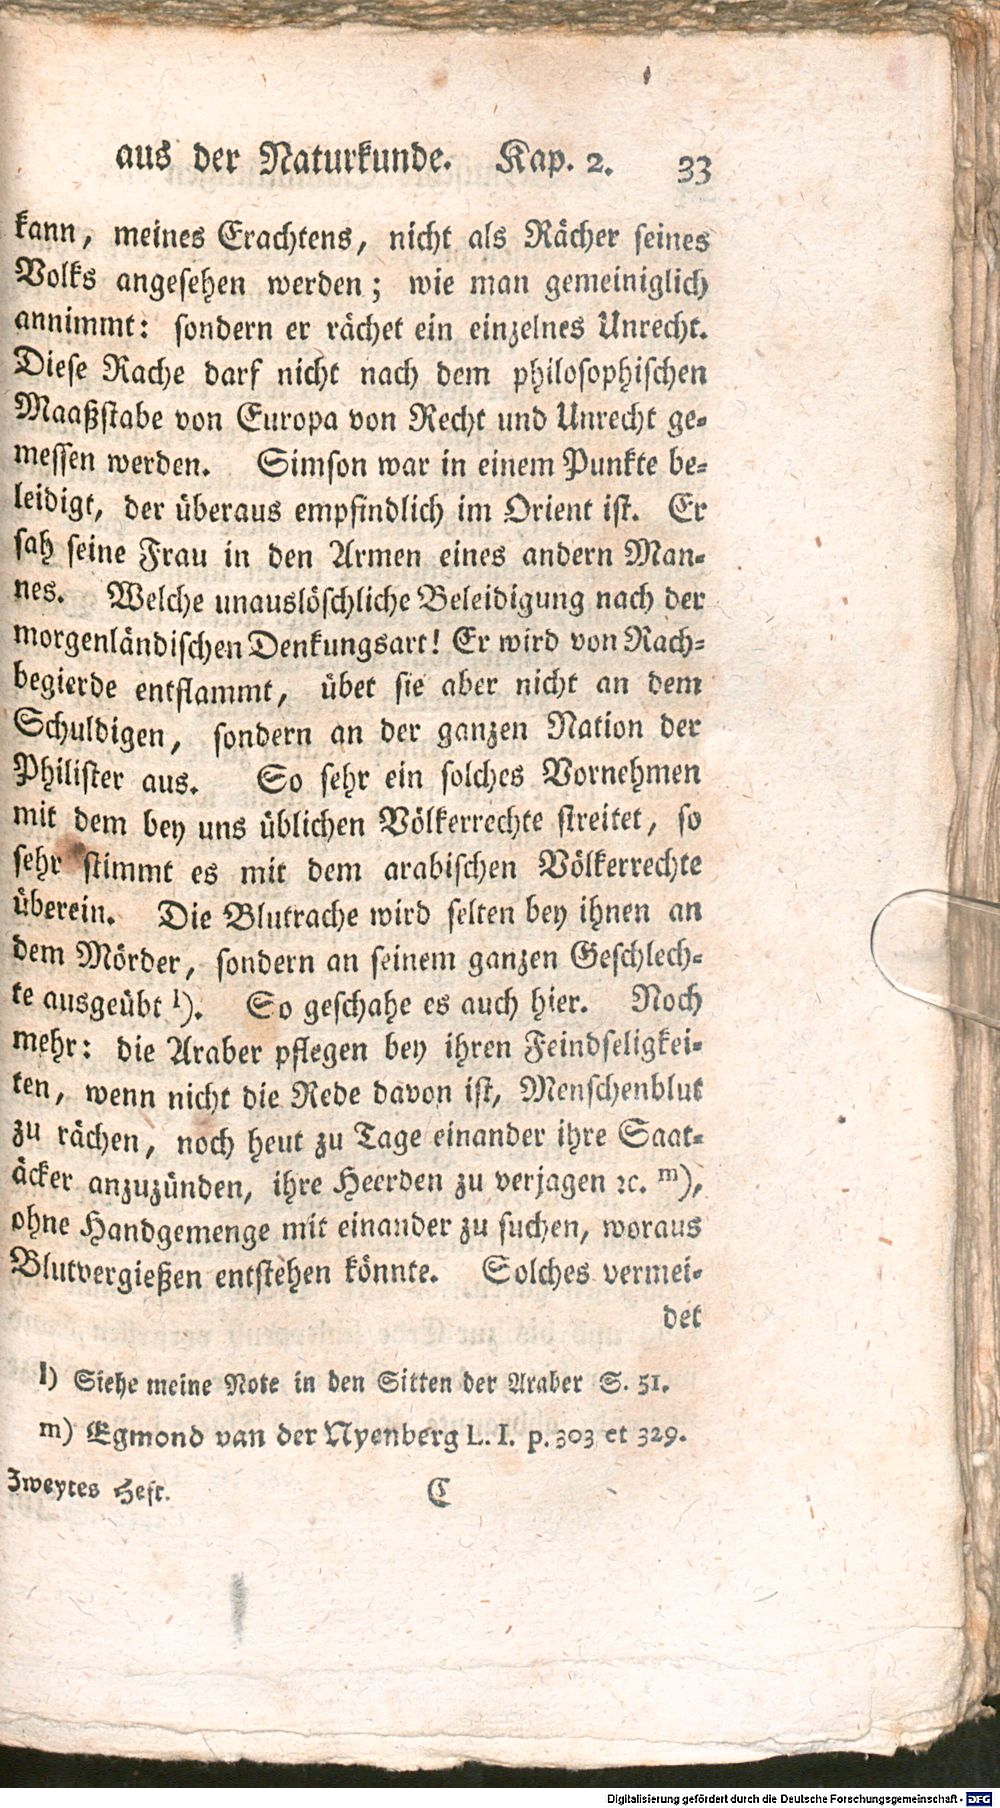 aus der Naturkunde. Kap. 2. 33
kann, meines Erachtens, nicht als Rächer seines
Volks angesehen werden; wie man gemeiniglich
annimmt: sondern er rächet ein einzelnes Unrecht.
Diese Rache darf nicht nach dem philosophischen
Maaßstabe von Europa von Recht und Unrecht ge-
messen werden. Simson war in einem Punkte be-
leidigt, der überaus empfindlich im Orient ist. Er
sah seine Frau in den Armen eines andern Man-
nes. Welche unauslöschliche Beleidigung nach der
morgenländischen Denkungsart! Er wird von Rach-
begierde entflammt, übet sie aber nicht an dem
Schuldigen, sondern an der ganzen Nation der
Philister aus. So sehr ein solches Vornehmen
mit dem bey uns üblichen Völkerrechte streitet, so
sehr stimmt es mit dem arabischen Völkerrechte
überein. Die Blutrache wird selten bey ihnen an
dem Mörder, sondern an seinem ganzen Geschlech-
te ausgeübt l). So geschahe es auch hier. Noch
mehr: die Araber pflegen bey ihren Feindseligkei-
ten, wenn nicht die Rede davon ist, Menschenblut
zu rächen, noch heut zu Tage einander ihre Saat-
äcker anzuzünden, ihre Heerden zu verjagen ꝛc. m),
ohne Handgemenge mit einander zu suchen, woraus
Blutvergießen entstehen könnte. Solches vermei-
det
l) Siehe meine Note in den Sitten der Araber S. 51.
m) Egmond van der Nyenberg L. I. p. 303 et 329.
Zweytes Heft. C
Digitalisierung gefördert durch die Deutsche Forschungsgemeinschaft - DFG